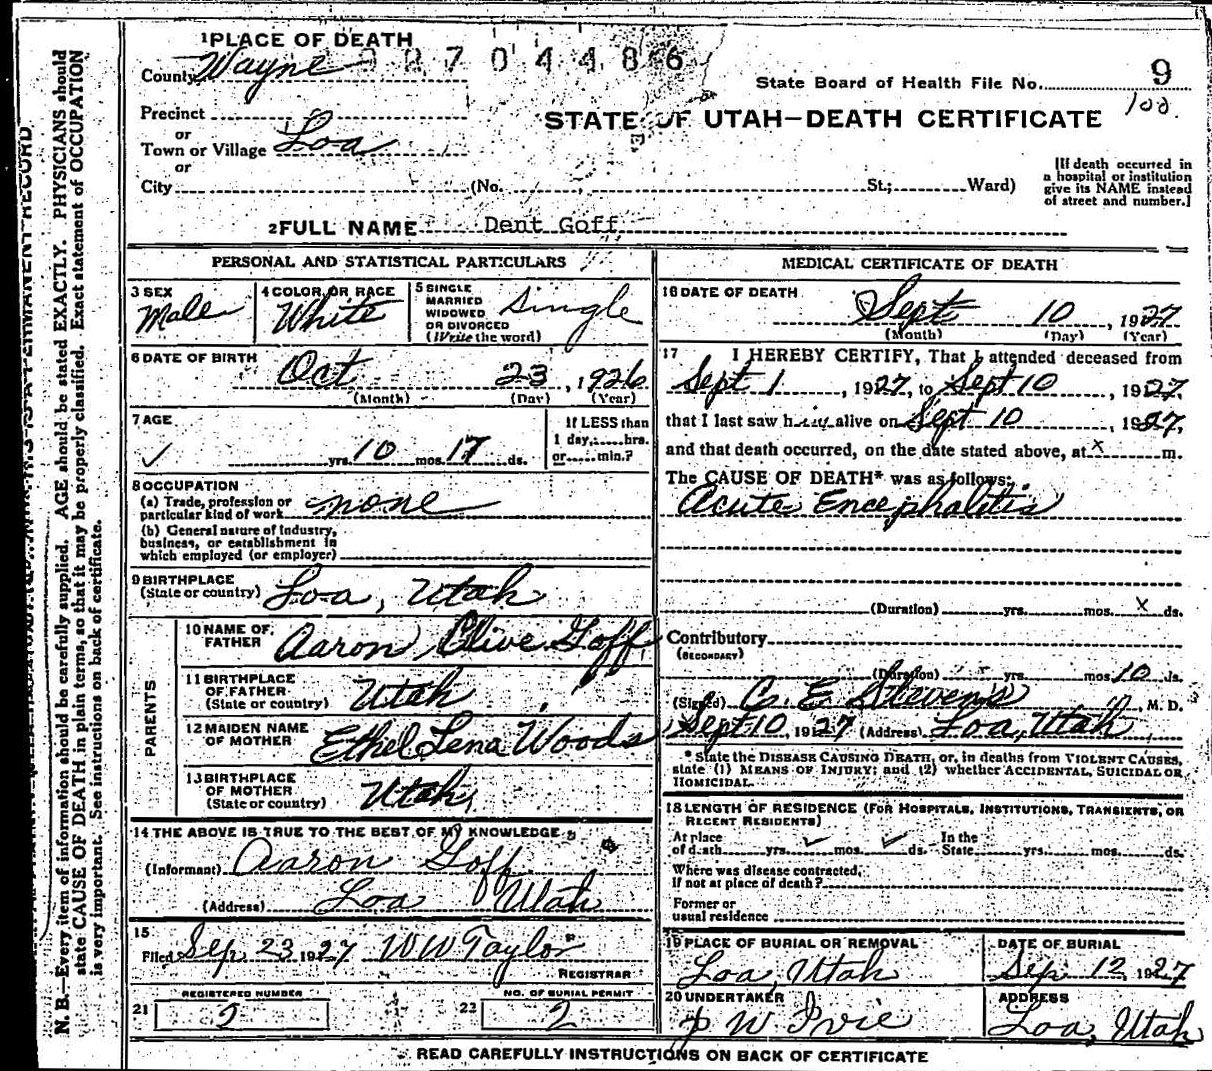 1 PLACE OF DEATH
County Wayne 2 7 0 4 4 8 6
State Board of Health File No. 9
Precinct 100.
or
STATE OF UTAH—DEATH CERTIFICATE
Town or Village Loa
or
City (No. St.; Ward)
[If death occurred in
a hospital or institution
give its NAME instead
of street and number.]
2 FULL NAME Dent Goff
PERSONAL AND STATISTICAL PARTICULARS
3 SEX
Male
4 COLOR OR RACE
White
5 SINGLE
MARRIED
WIDOWED
OR DIVORCED
(Write the word)
Single
6 DATE OF BIRTH
Oct 23, 1926
(Month) (Day) (Year)
7 AGE
yrs. 10 mos. 17 ds.
If LESS than
1 day, hrs.
or min.?
8 OCCUPATION
(a) Trade, profession or
particular kind of work none
(b) General nature of industry,
business, or establishment in
which employed (or employer)
9 BIRTHPLACE
(State or country) Loa, Utah
PARENTS
10 NAME OF
FATHER Aaron Clive Goff
11 BIRTHPLACE
OF FATHER
(State or country) Utah
12 MAIDEN NAME
OF MOTHER Ethel Lena Woods
13 BIRTHPLACE
OF MOTHER
(State or country) Utah
14 THE ABOVE IS TRUE TO THE BEST OF MY KNOWLEDGE
(Informant) Aaron Goff
(Address) Loa Utah
15
Filed Sep 23 1927 W W Taylor
REGISTRAR
REGISTERED NUMBER
21 2
NO. OF BURIAL PERMIT
22 2
MEDICAL CERTIFICATE OF DEATH
16 DATE OF DEATH
Sept 10, 1927
(Month) (Day) (Year)
17 I HEREBY CERTIFY, That I attended deceased from
Sept 1, 1927, to Sept 10, 1927
that I last saw him alive on Sept 10, 1927,
and that death occurred, on the date stated above, at x m.
The CAUSE OF DEATH* was as follows:
Acute Encephalitis
(Duration) yrs. mos. x ds.
Contributory
(SECONDARY)
(Duration) yrs. mos. 10 ds.
(Signed) C. E. Stevens, M. D.
Sept 10, 1927 (Address) Loa, Utah
*State the DISEASE CAUSING DEATH, or, in deaths from VIOLENT CAUSES,
state (1) MEANS OF INJURY; and (2) whether ACCIDENTAL, SUICIDAL OR
HOMICIDAL.
18 LENGTH OF RESIDENCE (FOR HOSPITALS, INSTITUTIONS, TRANSIENTS, OR
RECENT RESIDENTS)
At place In the
of death yrs. mos. ds. State yrs. mos. ds.
Where was disease contracted,
if not at place of death?
Former or
usual residence
19 PLACE OF BURIAL OR REMOVAL
Loa, Utah
DATE OF BURIAL
Sep 12, 1927
20 UNDERTAKER
J W Ivie
ADDRESS
Loa, Utah
READ CAREFULLY INSTRUCTIONS ON BACK OF CERTIFICATE
N. B.—Every item of information should be carefully supplied. AGE should be stated EXACTLY. PHYSICIANS should
state CAUSE OF DEATH in plain terms, so that it may be properly classified. Exact statement of OCCUPATION
is very important. See instructions on back of certificate.